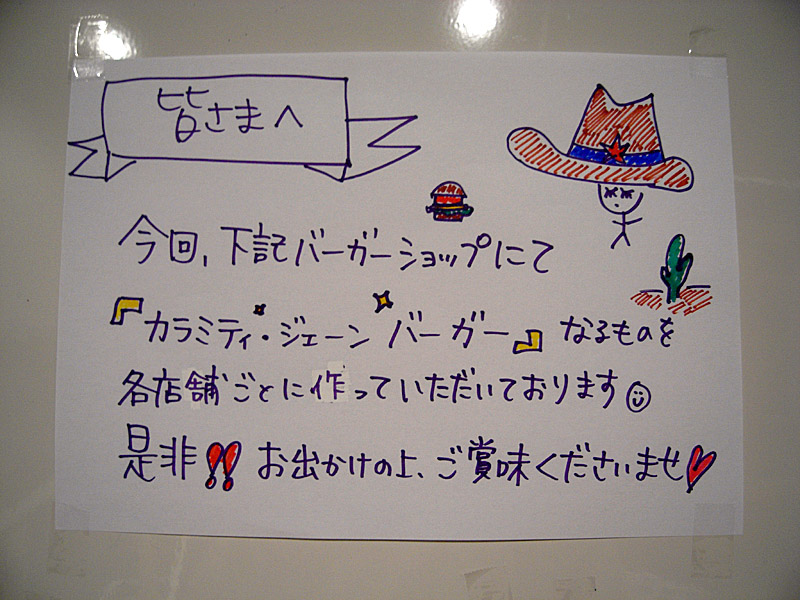 皆さまへ
今回、下記バーガーショップにて
『カラミティ・ジェーン バーガー』なるものを
各店舗ごとに作っていただいております☺
是非!! お出かけの上、ご賞味くださいませ♥